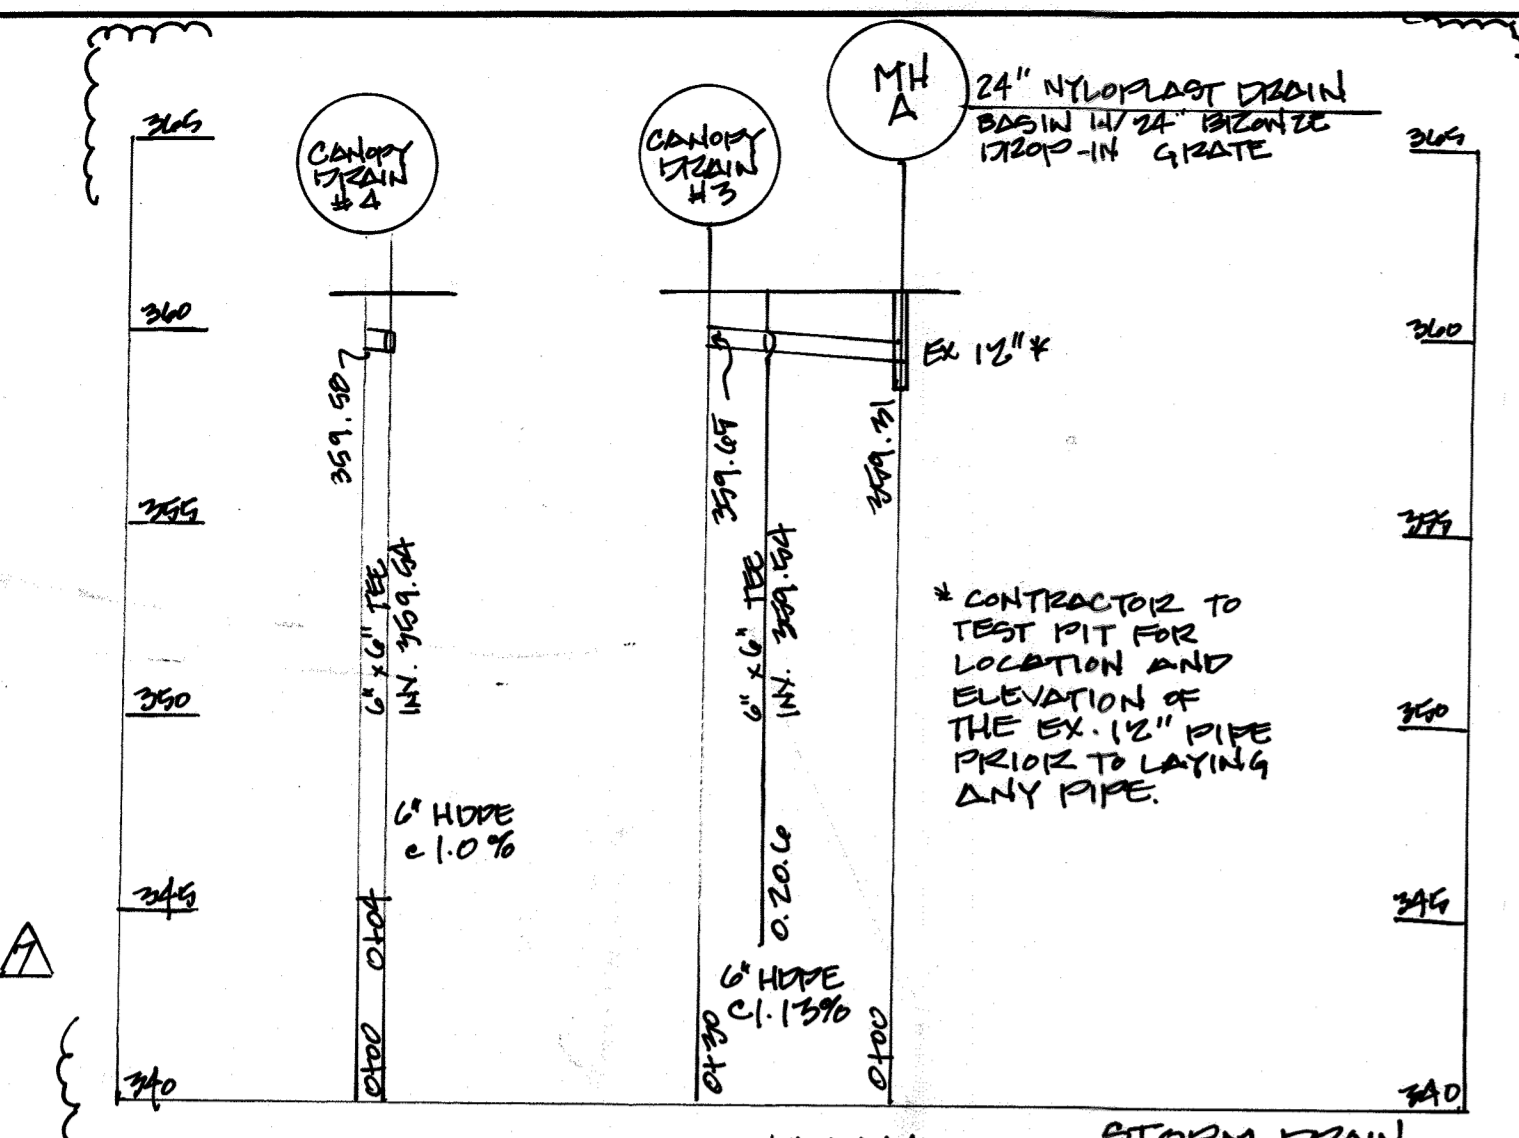 365
360
355
350
345
340
CANOPY
DRAIN
#4
359.58
6" x 6" TEE
INV. 359.54
6" HDPE
@ 1.0%
0+04
0+00
CANOPY
DRAIN
#3
359.65
6" x 6" TEE
INV. 359.54
0.20.6
6" HDPE
@ 1.13%
0+30
MH
A
24" NYLOPLAST DRAIN
BASIN W/ 24" BRONZE
DROP-IN GRATE
EX 12"*
359.31
0+00
* CONTRACTOR TO
TEST PIT FOR
LOCATION AND
ELEVATION OF
THE EX. 12" PIPE
PRIOR TO LAYING
ANY PIPE.
365
360
355
350
345
340
7
STORM DRAIN